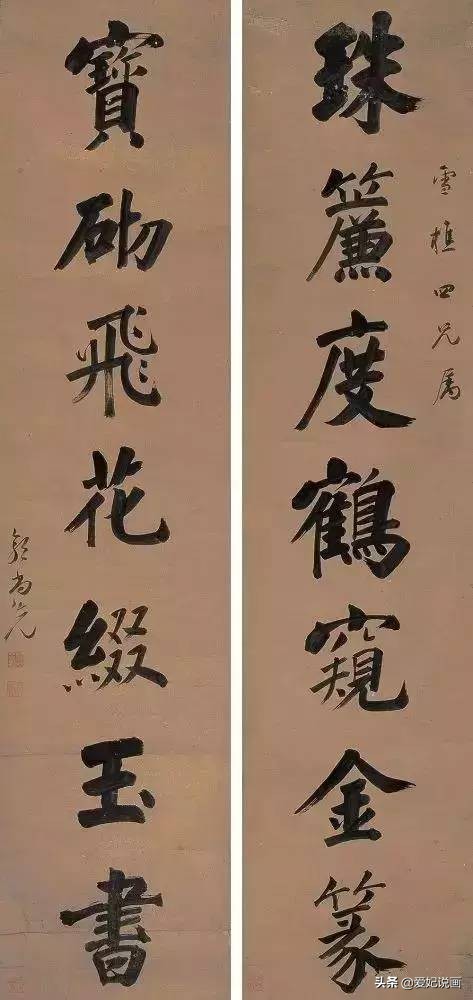 珠簾度鶴窺金篆
雪樵四兄属
寶砌飛花綴玉書
郭尚先
头条 @爱妃说画